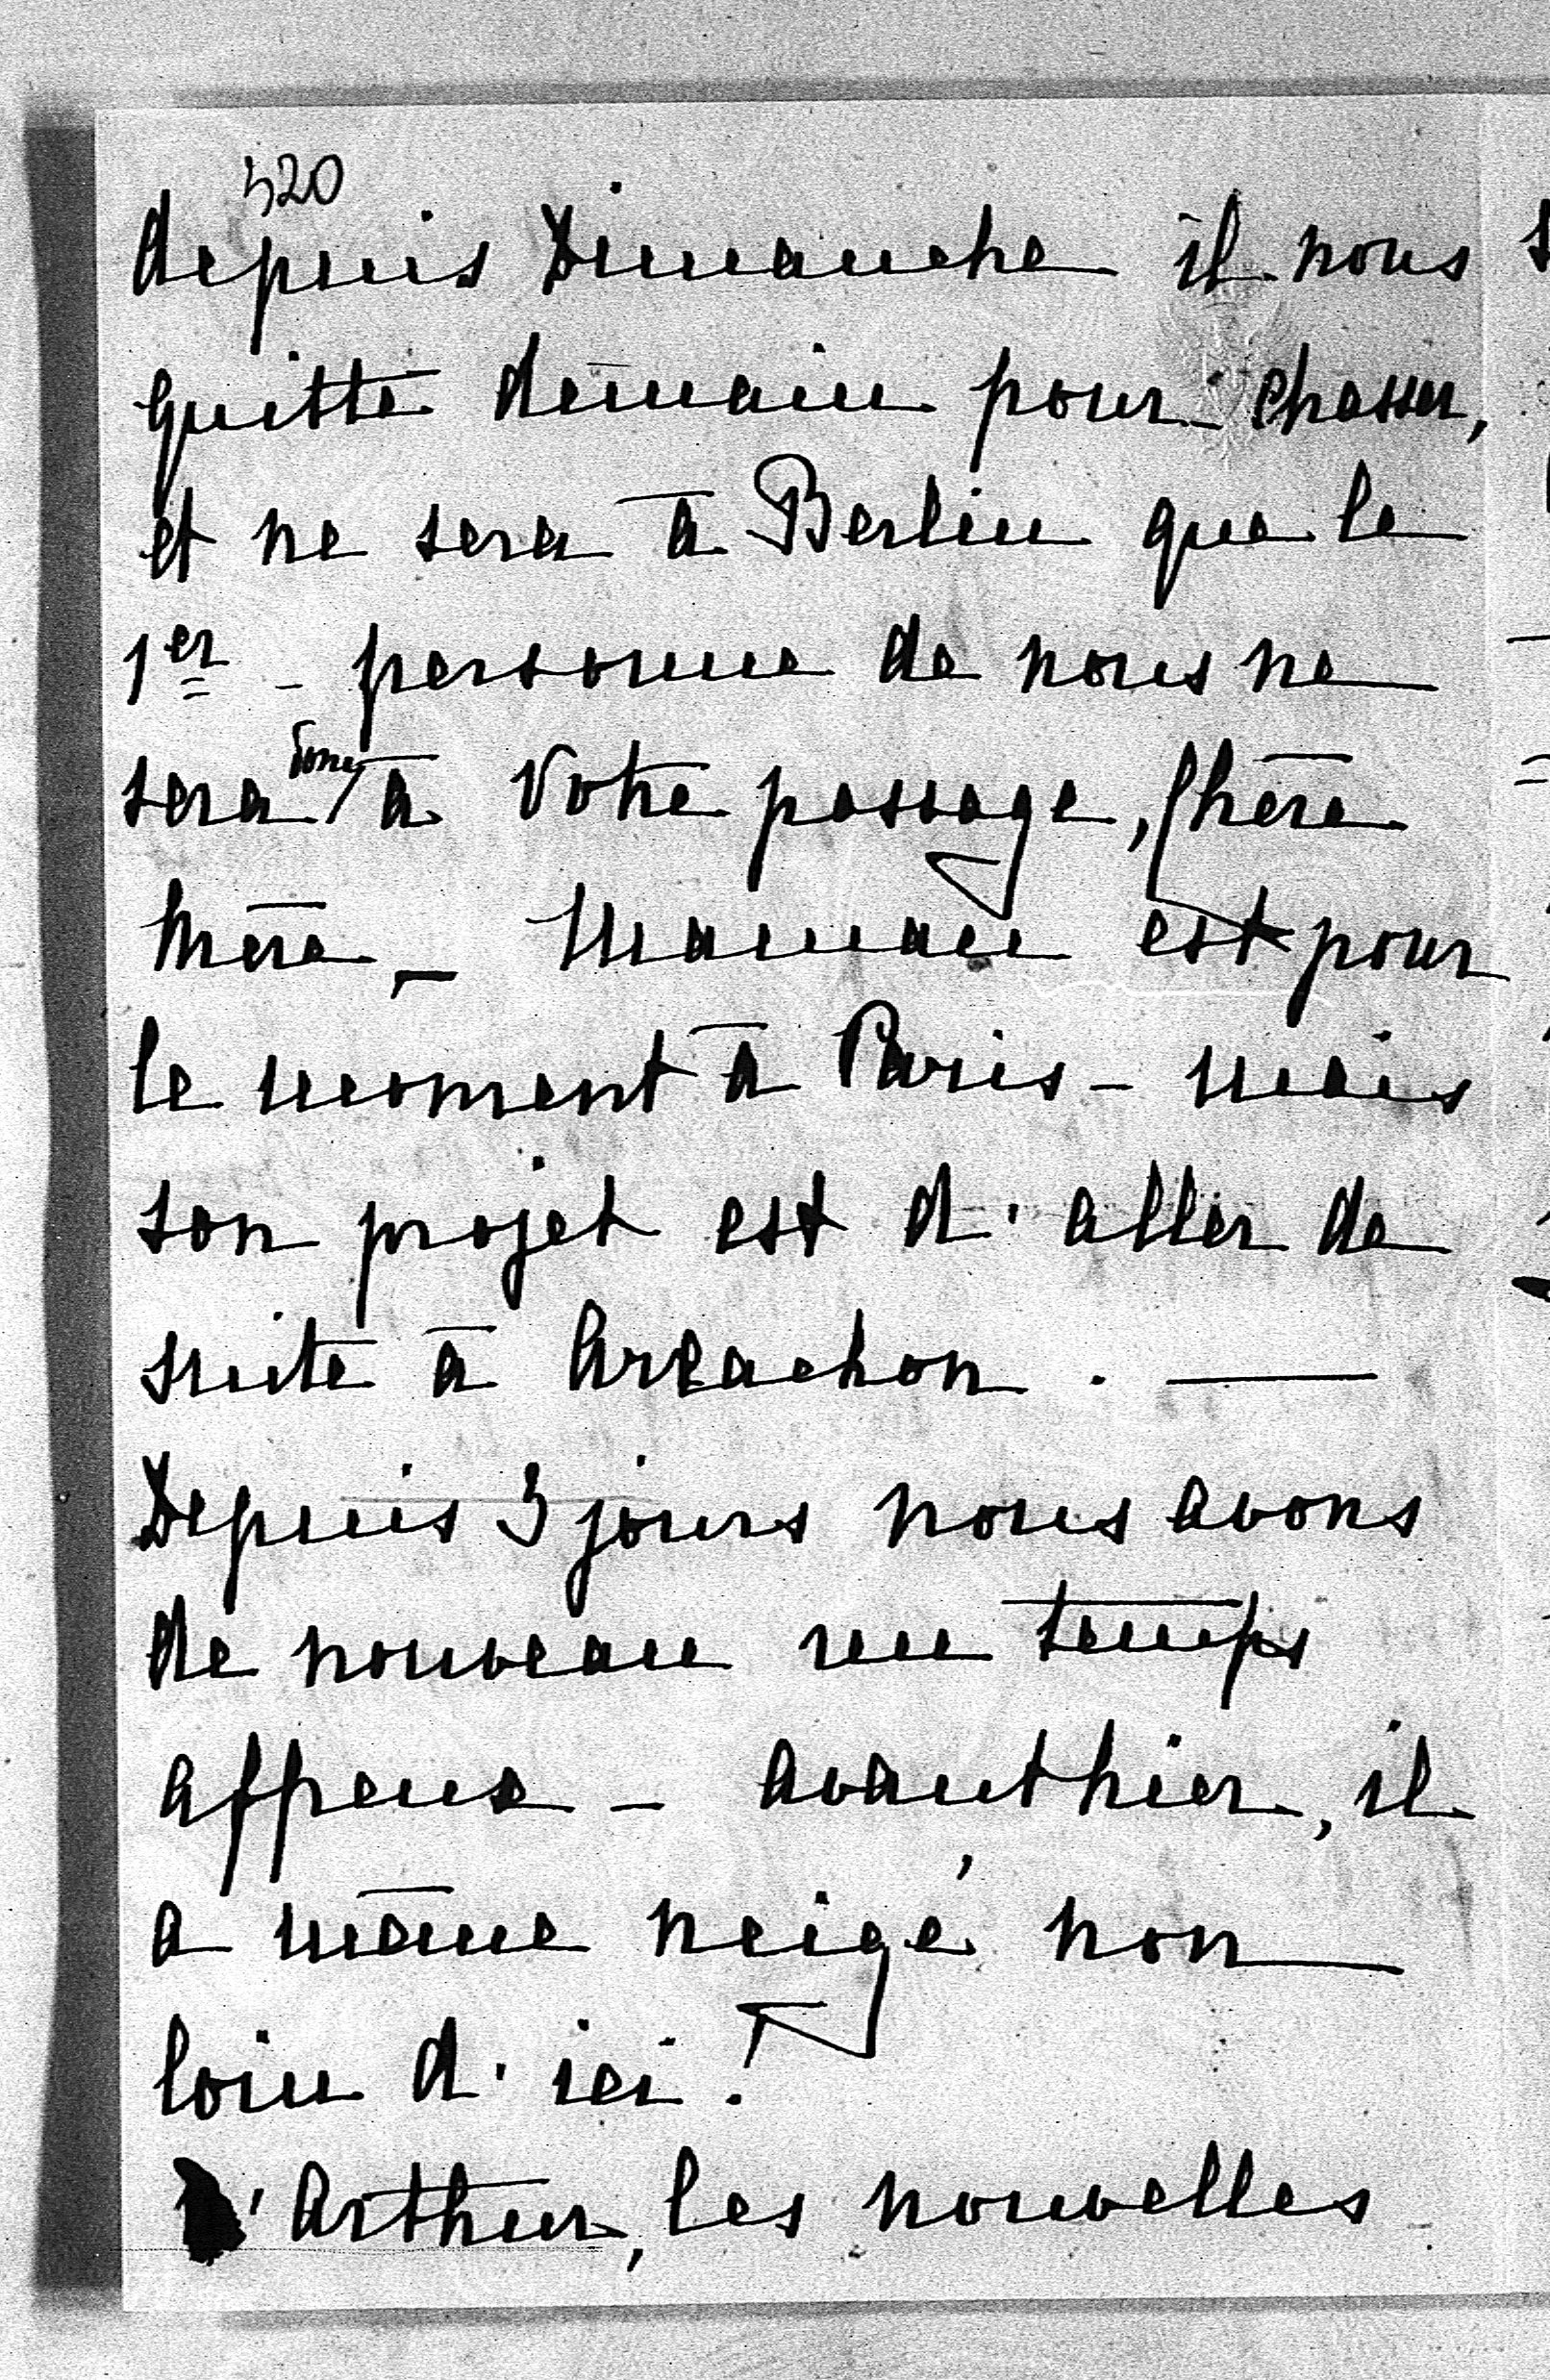 520
depuis Dimanche il nous
quitte demain pour chasser,
et ne sera à Berlin que le
1er - personne de nous ne
sera donc à votre passage, Chère
Mère, - Maman est pour
le moment à Paris - mais
son projet est d'aller de
suite à Arcachon. —
Depuis 3 jours nous avons
de nouveau un temps
affreux - avanthier, il
a même neigé non
loin d'ici!
D'Arthur, les nouvelles